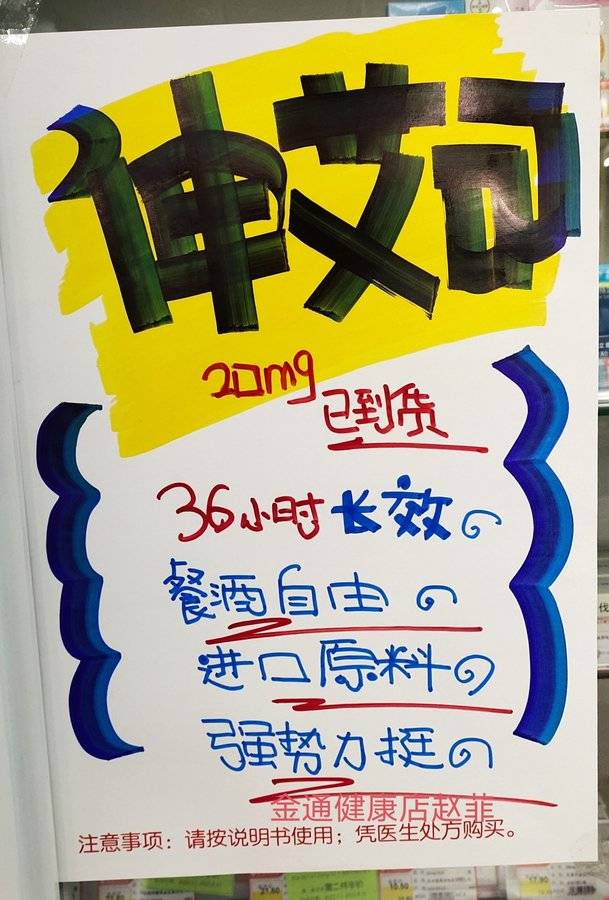 伸艾司
20mg
已到货
36小时长效
餐酒自由
进口原料
强势力挺
金通健康店赵菲
注意事项：请按说明书使用；凭医生处方购买。